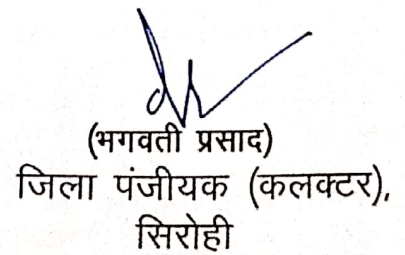 (भगवती प्रसाद)
जिला पंजीयक (कलक्टर),
सिरोही